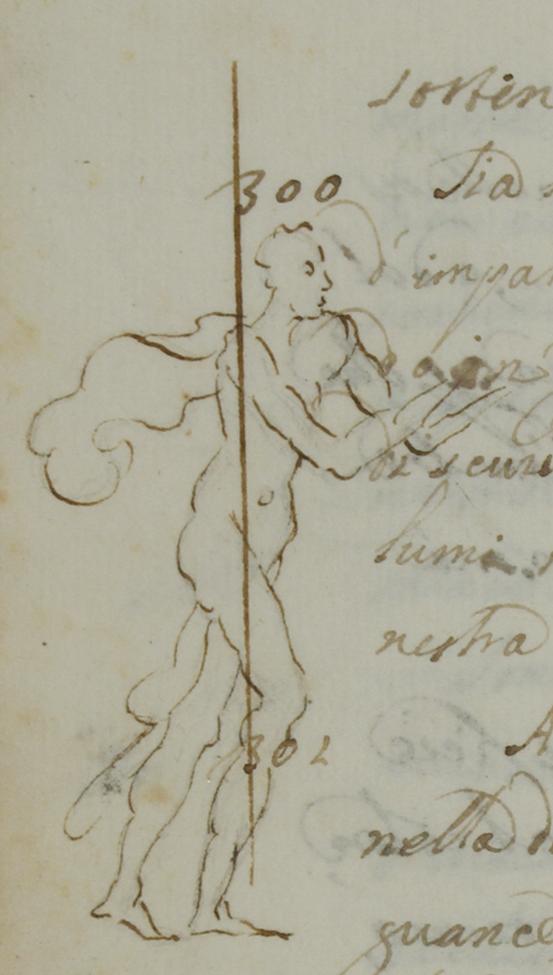 sosten
300
sia
d'impar
di scure
lumi
nestra
301
A
nella d
guance